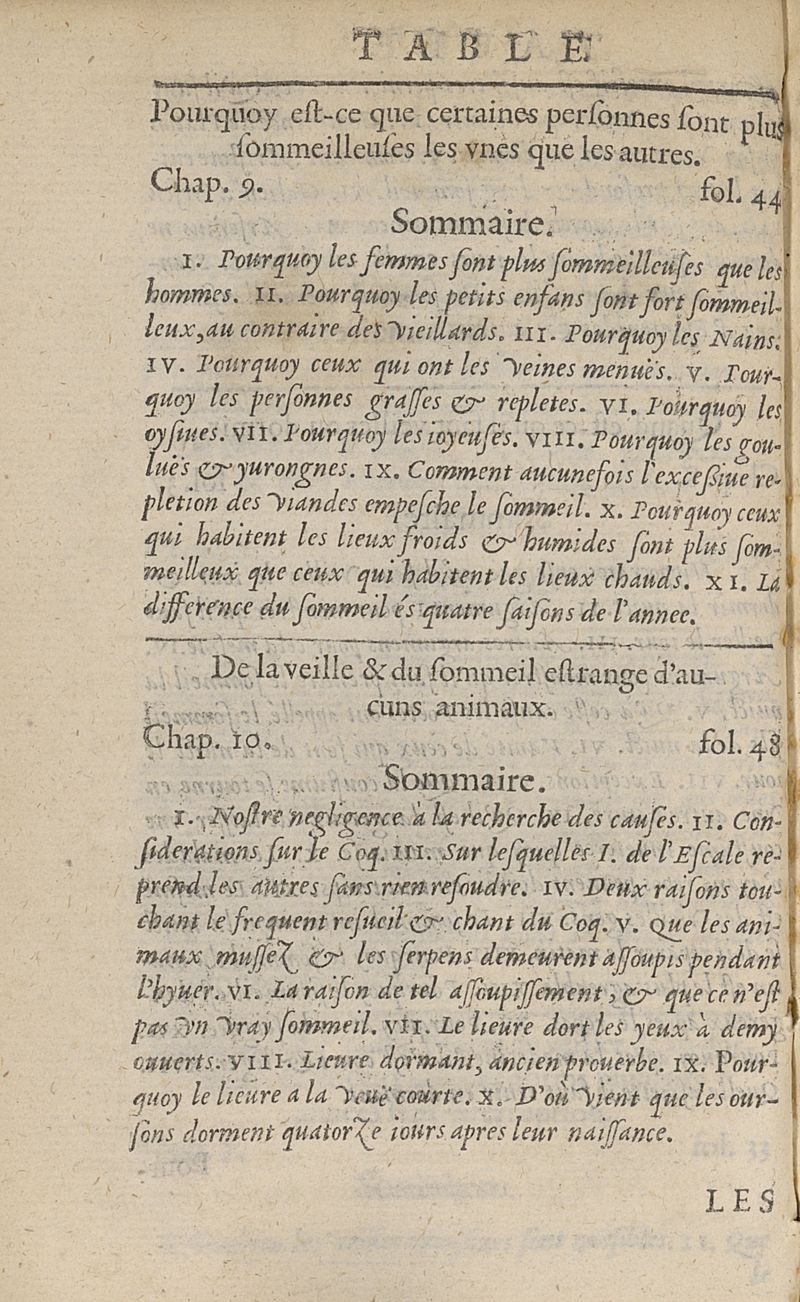 TABLE
Pourquoy eſt-ce que certaines perſonnes ſont plus
ſommeilleuſes les vnes que les autres.
Chap. 9. fol. 44
Sommaire.
I. Pourquoy les femmes ſont plus ſommeilleuſes que les
hommes. II. Pourquoy les petits enfans ſont fort ſommeil-
leux, au contraire des vieillards. III. Pourquoy les Nains.
IV. Pourquoy ceux qui ont les veines menuës. V. Pour-
quoy les perſonnes graſſes & repletes. VI. Pourquoy les
oyſiues. VII. Pourquoy les ioyeuſes. VIII. Pourquoy les gou-
luës & yurongnes. IX. Comment aucunefois l'exceſſiue re-
pletion des viandes empeſche le ſommeil. X. Pourquoy ceux
qui habitent les lieux froids & humides ſont plus ſom-
meilleux que ceux qui habitent les lieux chauds. XI. La
difference du ſommeil és quatre ſaiſons de l'annee.
De la veille & du ſommeil eſtrange d'au-
cuns animaux.
Chap. 10. fol. 48
Sommaire.
I. Noſtre negligence à la recherche des cauſes. II. Con-
ſiderations ſur le Coq. III. Sur leſquelles I. de l'Eſcale re-
prend les autres ſans rien reſoudre. IV. Deux raiſons tou-
chant le frequent reſueil & chant du Coq. V. Que les ani-
maux muſſez & les ſerpens demeurent aſſoupis pendant
l'hyuer. VI. La raiſon de tel aſſoupiſſement, & que ce n'eſt
pas vn vray ſommeil. VII. Le lieure dort les yeux à demy
ouuerts. VIII. Lieure dormant, ancien prouerbe. IX. Pour-
quoy le lieure a la veuë courte. X. D'où vient que les our-
ſons dorment quatorze iours apres leur naiſſance.
LES